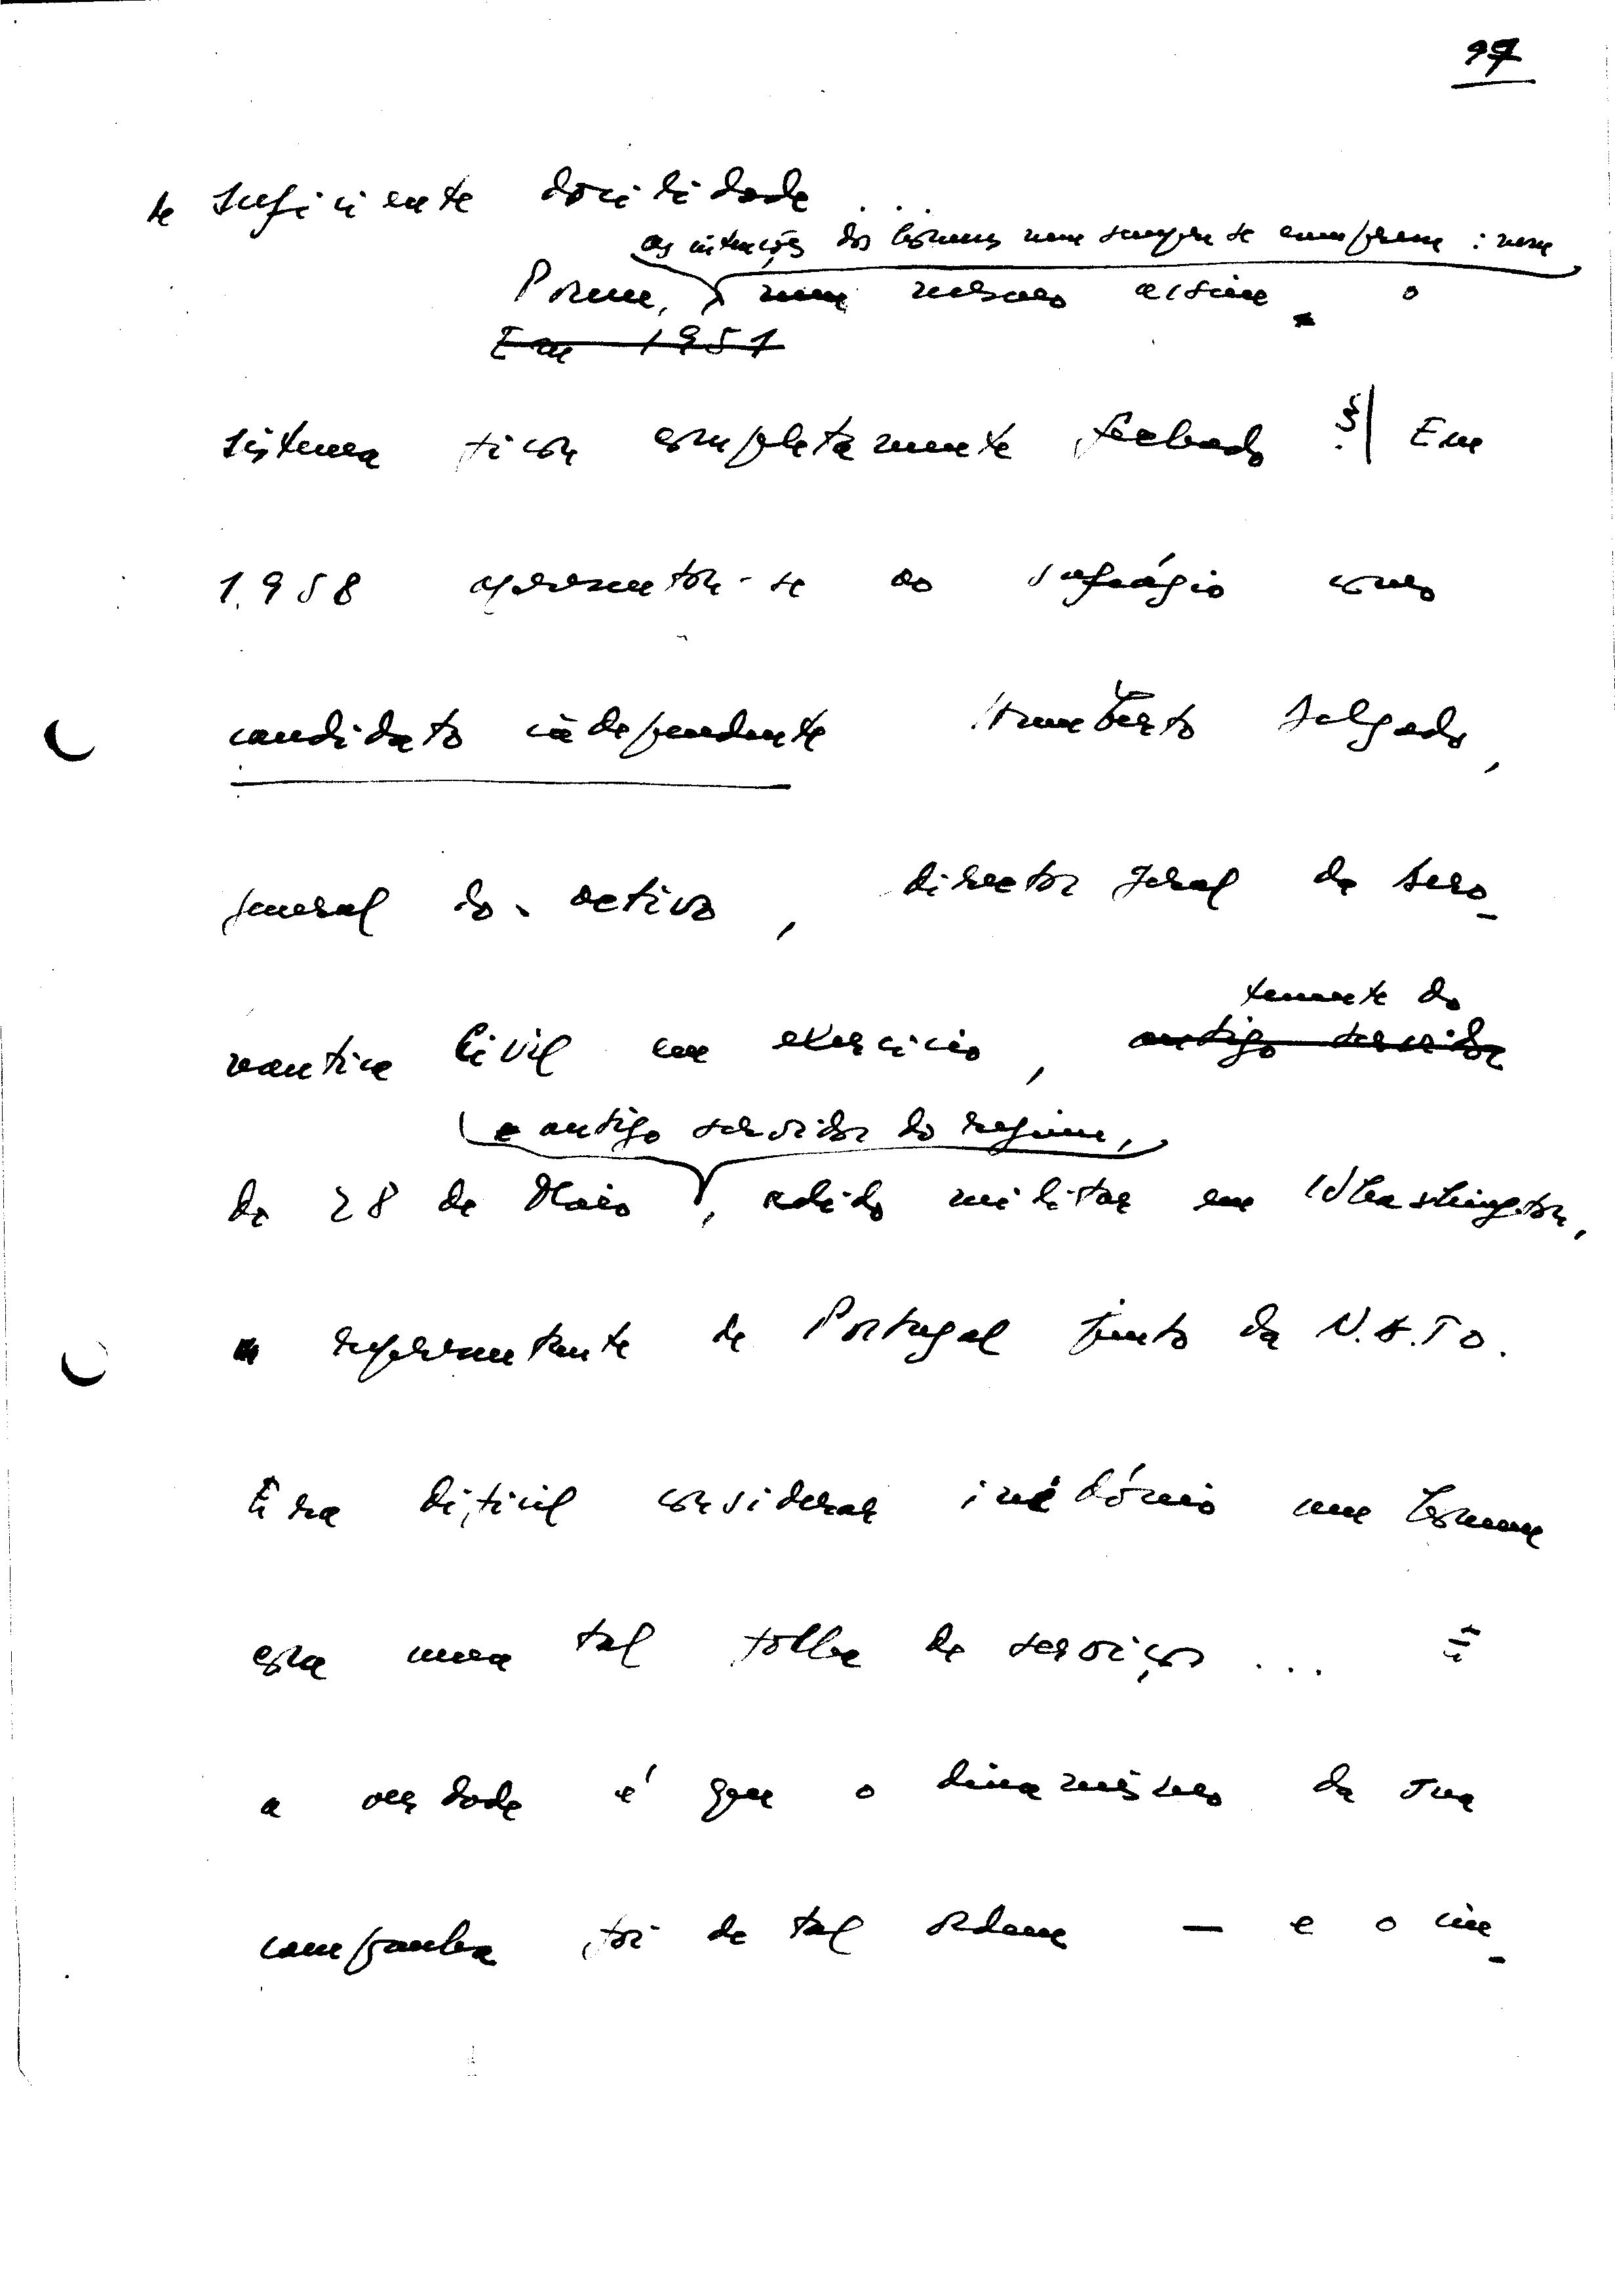 97
te suficiente docilidade ...
as intenções dos homens nem sempre se cumprem : nem
Porém, nem mesmo assim o
Em 1951
sistema ficou completamente fechado § Em
1958 apresentou-se ao sufrágio como
candidato independente Humberto Delgado,
general do activo, director geral da Aero-
nautica Civil em exercicio, antigo servidor
tenente do
e antigo servidor do regime,
de 28 de Maio, adido militar em Washington,
representante de Portugal junto da N.A.T.O.
Era dificil considerar inidóneo um homem
com uma tal folha de serviços ... E
a verdade é que o dinamismo da sua
campanha foi de tal ordem — e o im-